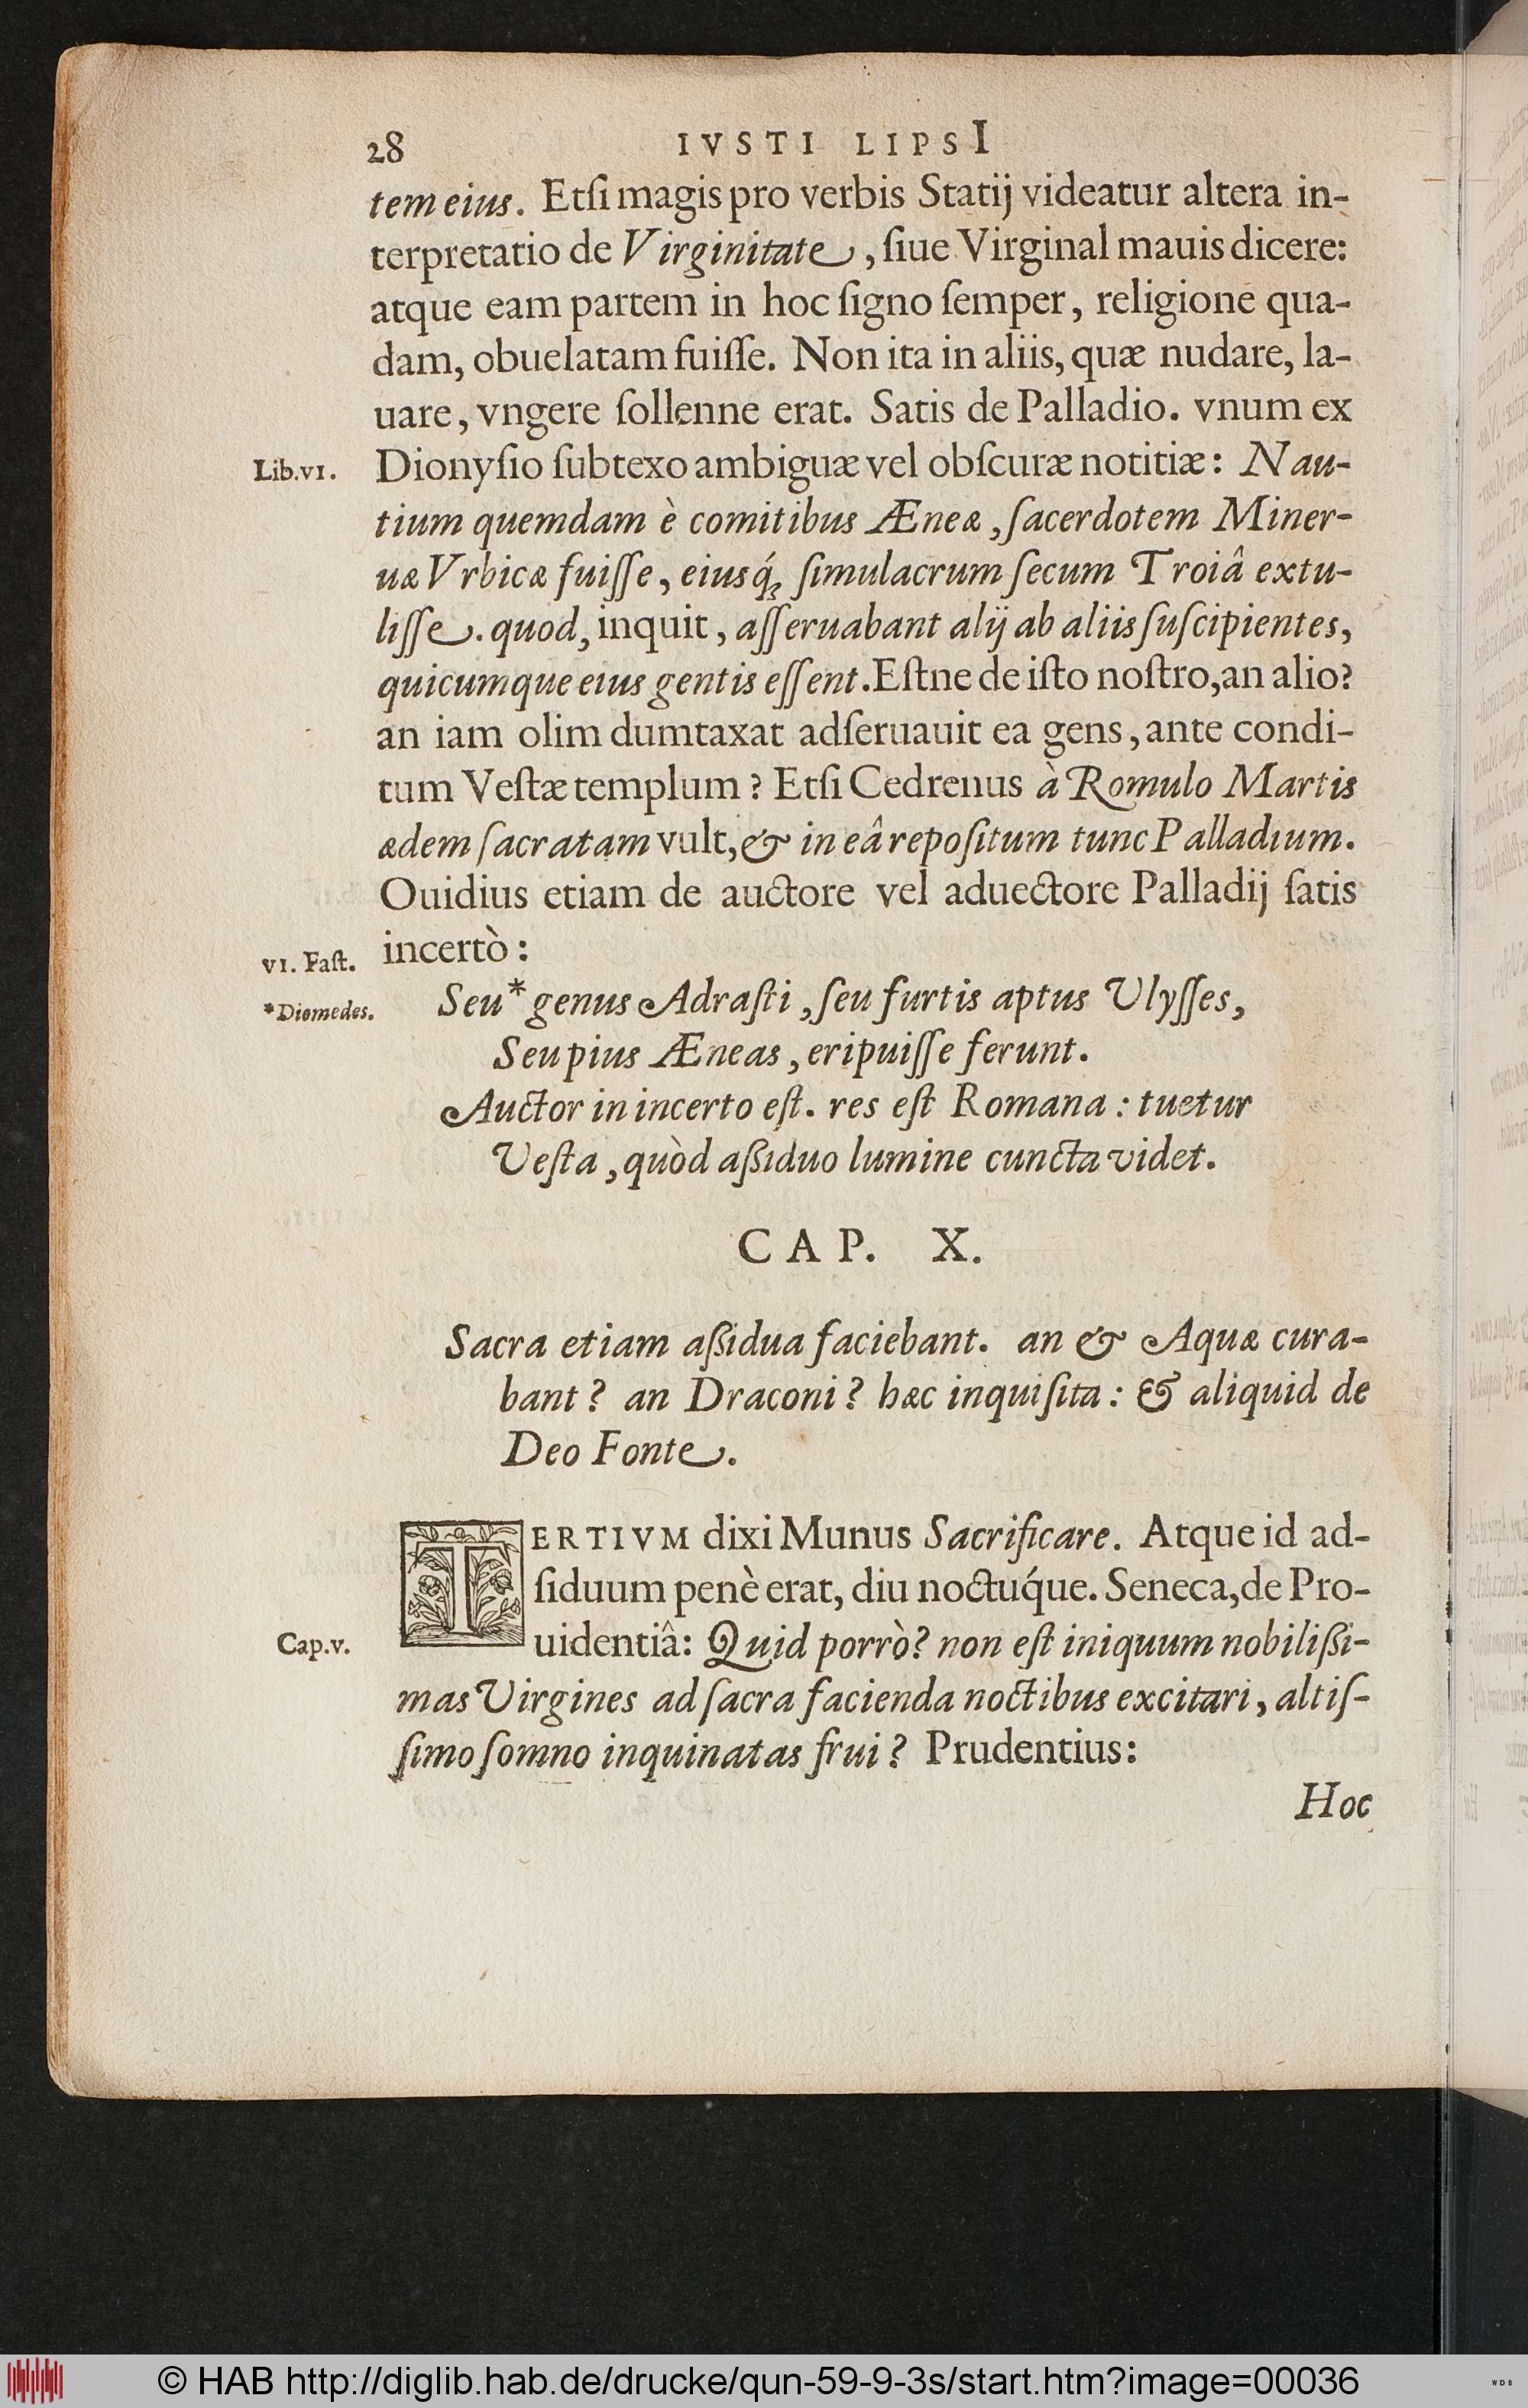 28 IVSTI LIPSI
tem eius. Etſi magis pro verbis Statij videatur altera in-
terpretatio de Virginitate, ſiue Virginal mauis dicere:
atque eam partem in hoc ſigno ſemper, religione qua-
dam, obuelatam fuiſſe. Non ita in aliis, quæ nudare, la-
uare, vngere ſollenne erat. Satis de Palladio. vnum ex
Lib.vi. Dionyſio ſubtexo ambiguæ vel obſcuræ notitiæ: Nau-
tium quemdam è comitibus Æneæ, ſacerdotem Miner-
uæ Vrbicæ fuiſſe, eiusq́; ſimulacrum ſecum Troiâ extu-
liſſe. quod, inquit, aſſeruabant alij ab aliis ſuſcipientes,
quicumque eius gentis eſſent. Eſtne de iſto noſtro, an alio?
an iam olim dumtaxat adſeruauit ea gens, ante condi-
tum Veſtæ templum? Etſi Cedrenus à Romulo Martis
ædem ſacratam vult, & in eâ repoſitum tunc Palladium.
Ouidius etiam de auctore vel aduectore Palladij ſatis
vi. Faſt. incertò:
*Diomedes. Seu* genus Adraſti, ſeu furtis aptus Vlyſſes,
Seu pius Æneas, eripuiſſe ferunt.
Auctor in incerto eſt. res eſt Romana: tuetur
Veſta, quòd aßiduo lumine cuncta videt.
CAP. X.
Sacra etiam aßidua faciebant. an & Aquæ cura-
bant? an Draconi? hæc inquiſita: & aliquid de
Deo Fonte.
TERTIVM dixi Munus Sacrificare. Atque id ad-
ſiduum penè erat, diu noctuq́ue. Seneca, de Pro-
Cap.v. uidentiâ: Quid porrò? non eſt iniquum nobilißi-
mas Virgines ad ſacra facienda noctibus excitari, altiſ-
ſimo ſomno inquinatas frui? Prudentius:
Hoc
© HAB http://diglib.hab.de/drucke/qun-59-9-3s/start.htm?image=00036